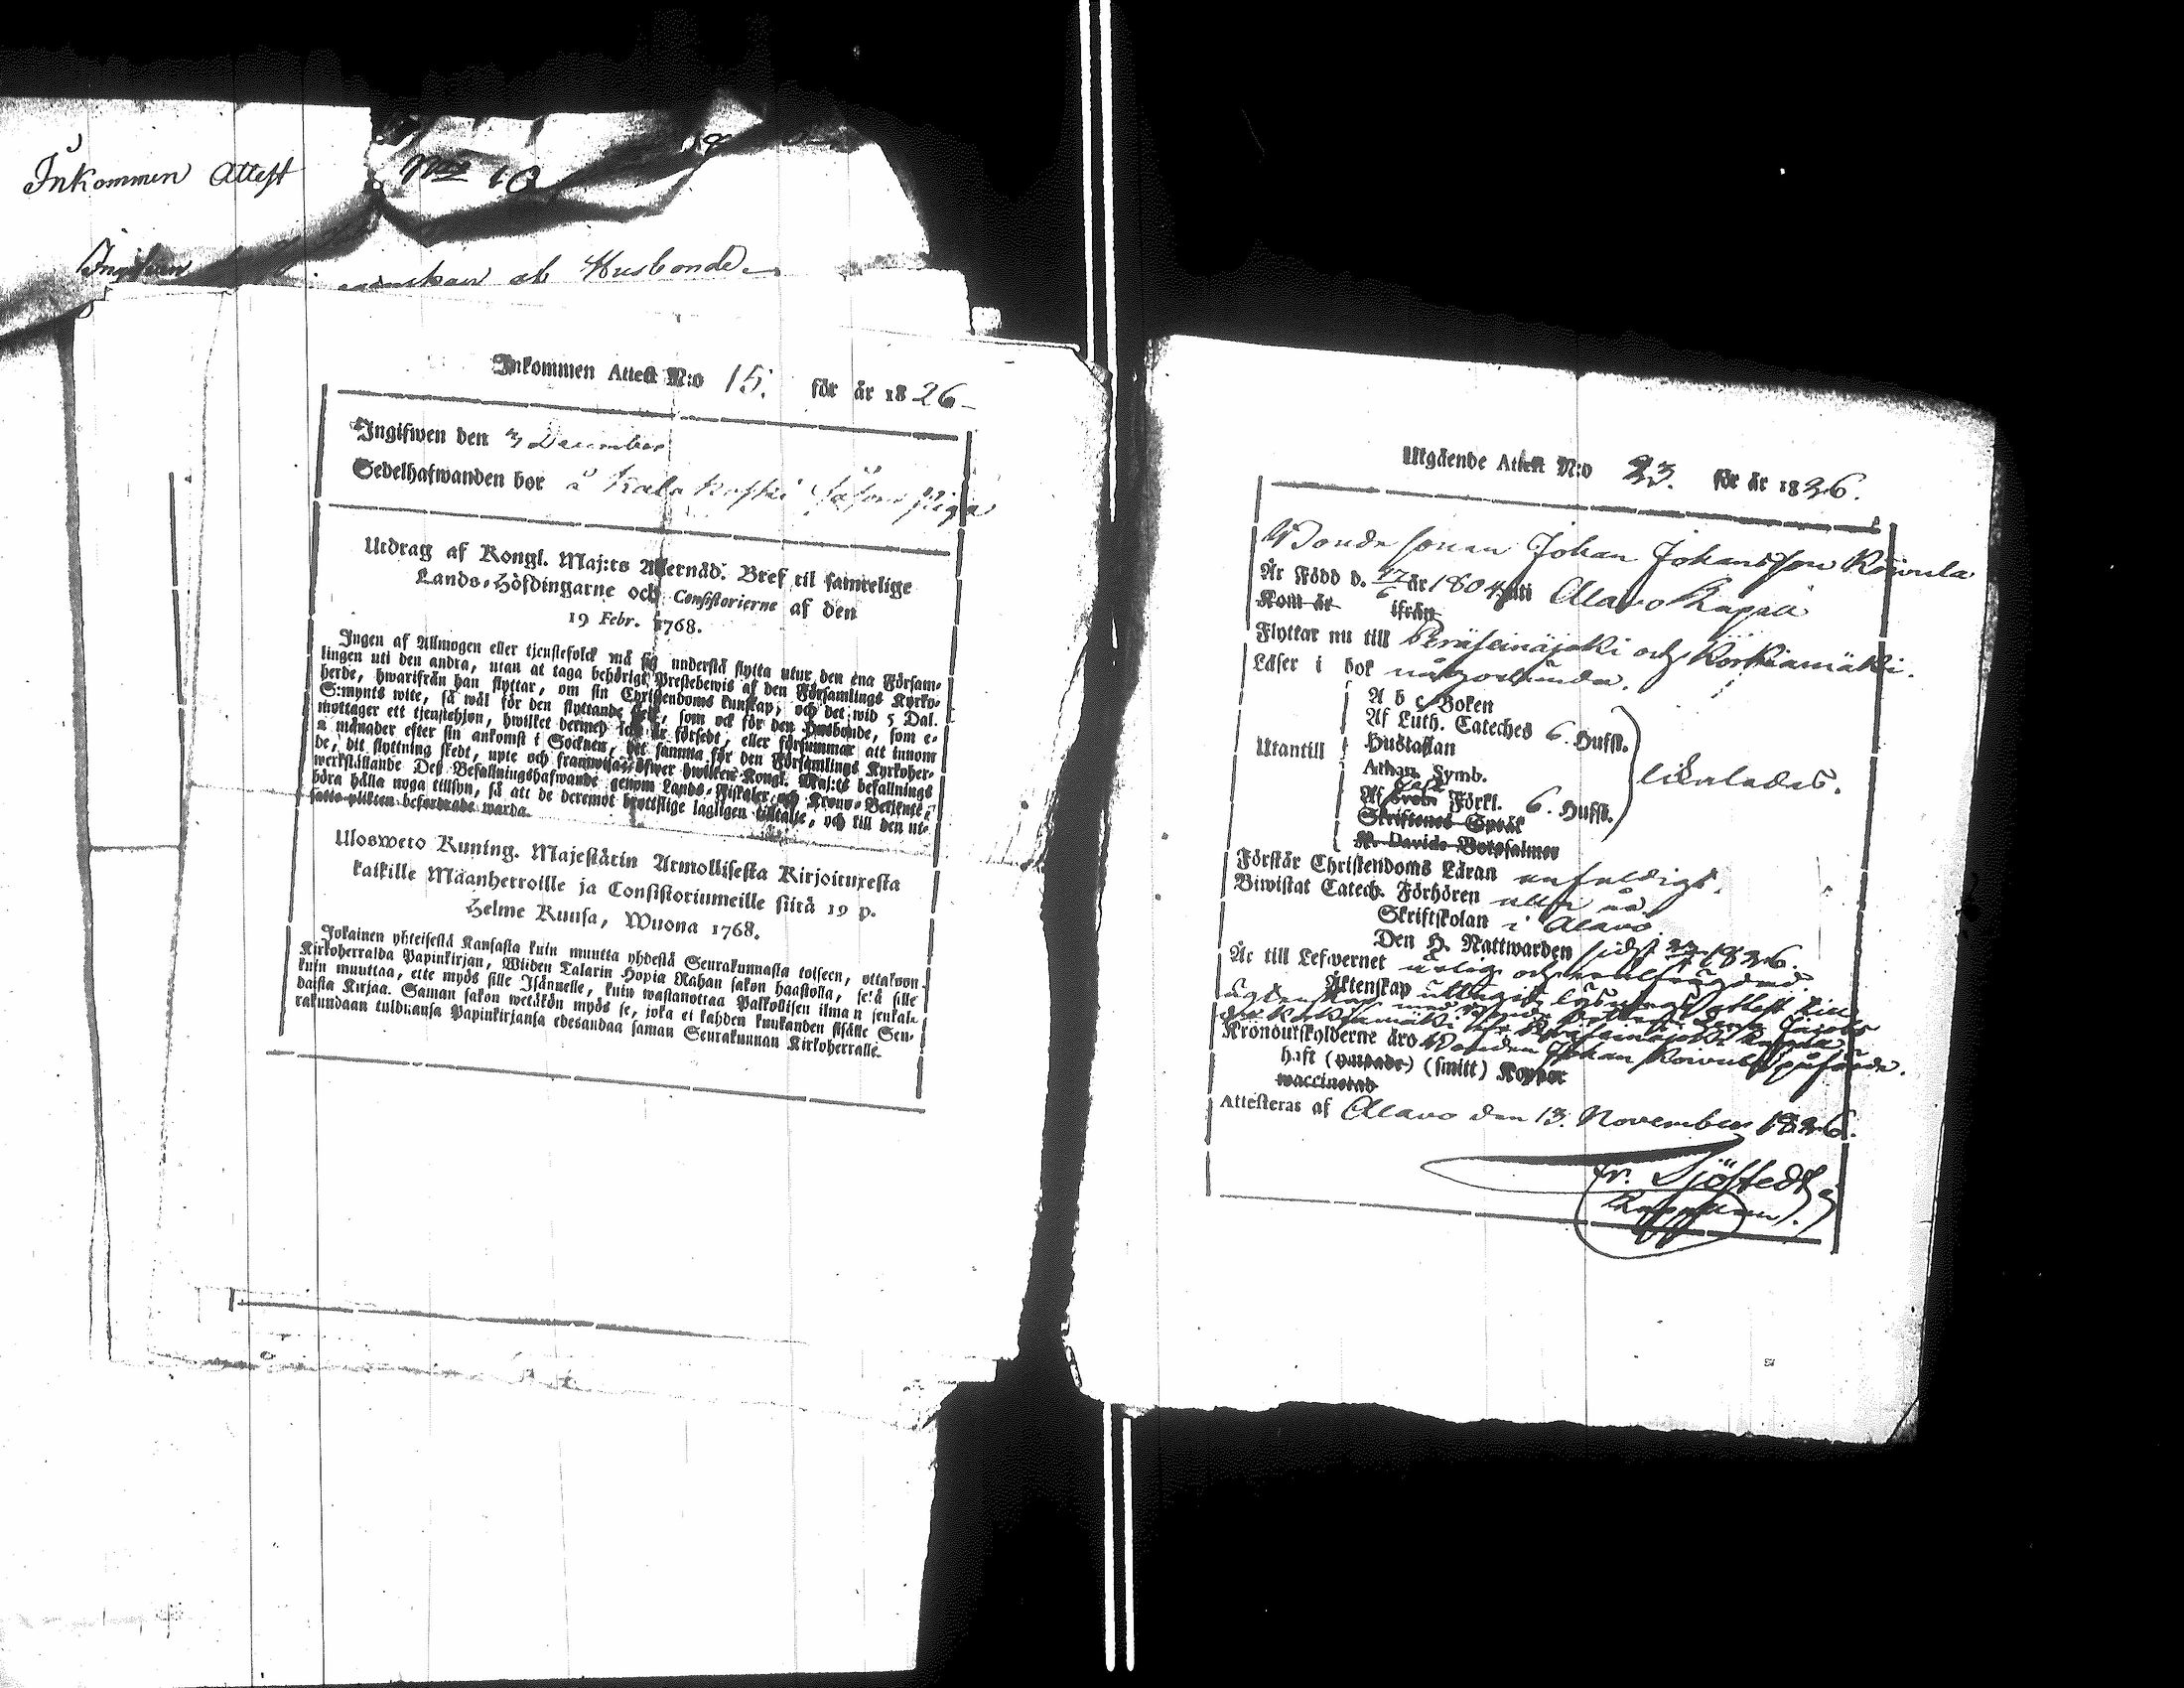 Inkommen Attest
No 10
Ingifven
ab Husbonde
Inkommen Attest N:o 15. för år 1826
Ingifwen den 3 December
Sedelhafwanden bor å Kalakoski piga
Utdrag af Kongl. Maj:ts Allernåd. Bref til samtelige
Lands-Höfdingarne och Consistorierne af den
19 Febr. 1768.
Ingen af Allmogen eller tjenstefolck må sig understå flytta utur den ena Försam-
lingen uti den andra, utan at taga behörigt Prestebewis af den Församlings Kyrko-
herde, hwarifrån han flyttar, om sin Christendoms kunskap, och det wid 5 Dal.
S:mynts wite, så wäl för den flyttande sielf, som ock för den Husbonde, som e-
mottager ett tjenstehjon, hwilket dermed icke är försedt, eller försummar att innom
2 månader efter sin ankomst i Socknen, det samma för den Församlings Kyrkoher-
de, dit flyttning skedt, upte och framwisa; öfwer hwilken Kongl. Maj:ts befallnings
werkställande Des Befallningshafwande genom Lands-Fiskaler och Krono-Betjente
böra hålla noga tillsyn, så att de deremot brottslige lagligen tilltalte, och till den ut-
satta plikten befordrade warda.
Ulosweto Kuning. Majestätin Armollisesta Kirjoituxesta
kaikille Maanherroille ja Consistoriumeille siitä 19 p.
Helme Kuusa, Wuona 1768.
Jokainen yhteisestä Kansasta kuin muutta yhdestä Seurakunnasta toiseen, ottakoon
Kirkoherralda Papinkirjan, Wiiden Talarin Hopia Rahan sakon haastolla, se'ä sille
kuin muuttaa, ette myös sille Isännelle, kuin wastanottaa Palkollisen ilman senkal-
daista Kirjaa. Saman sakon wetäkön myös se, joka ei kahden kuukauden sisälle Seu-
rakundaan tulduansa Papinkirjansa edesandaa saman Seurakunnan Kirkoherralle.
Utgående Attest N:o 23. för år 1826.
Bonde sonen Johan Johansson Koivula
Är Född d. 17/6 år 1804 uti Alavo Kapell
Kom år ifrån
Flyttar nu till Peräseinäjoki och Korkiamäki.
Läser i bok någorlunda.
A b c Boken
Af Luth. Cateches 6. Hufst.
Hustaflan
Utantill
Athan. Symb.
likaledes.
Af Sveb. Förkl. 6. Hufst.
Skriftenes Språk
K. Davids Botpsalmer
Förstår Christendoms Läran enfaldigt.
Biwistat Catech. Förhören
Skriftskolan i Alavo
Den H. Nattwarden sidst 1826.
Är till Lefwernet ärlig och
Äktenskap uttagit lysnings attest till
Kronoutskylderne äro Bonden Johan Koivula påförde.
haft (ympade) (smitt) Koppor
waccinerad
Attesteras af Alavo den 13. November 1826.
Fr. Sjöstedt
Kappellan.